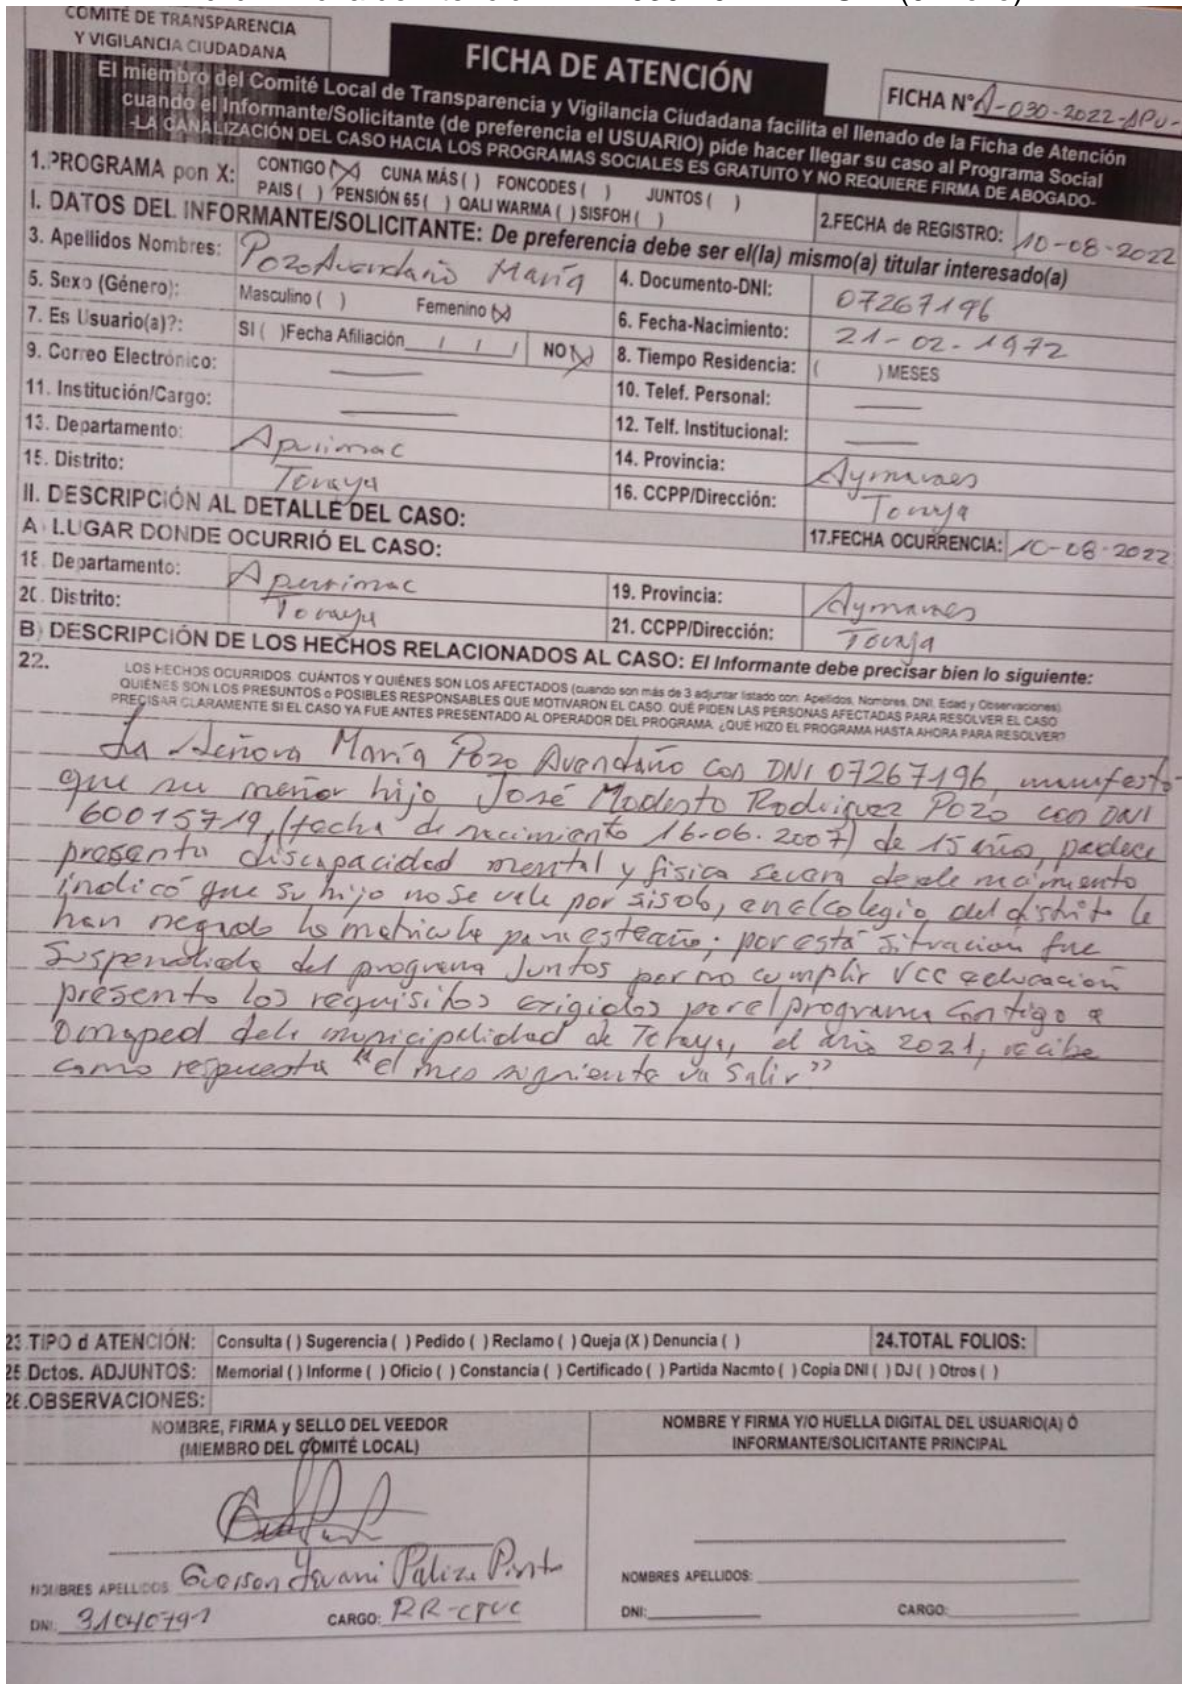 COMITÉ DE TRANSPARENCIA
Y VIGILANCIA CIUDADANA
FICHA DE ATENCIÓN
FICHA N° A-030-2022-APU-
El miembro del Comité Local de Transparencia y Vigilancia Ciudadana facilita el llenado de la Ficha de Atención
cuando el Informante/Solicitante (de preferencia el USUARIO) pide hacer llegar su caso al Programa Social
-LA CANALIZACIÓN DEL CASO HACIA LOS PROGRAMAS SOCIALES ES GRATUITO Y NO REQUIERE FIRMA DE ABOGADO-
1.PROGRAMA pon X: CONTIGO (X) CUNA MÁS ( ) FONCODES ( ) JUNTOS ( )
PAIS ( ) PENSIÓN 65 ( ) QALI WARMA ( ) SISFOH ( )
2.FECHA de REGISTRO: 10-08-2022
I. DATOS DEL INFORMANTE/SOLICITANTE: De preferencia debe ser el(la) mismo(a) titular interesado(a)
3. Apellidos Nombres: Pozo Avendaño María 4. Documento-DNI: 07267196
5. Sexo (Género): Masculino ( ) Femenino (X) 6. Fecha-Nacimiento: 21-02-1972
7. Es Usuario(a)?: SI ( )Fecha Afiliación / / / NO (X) 8. Tiempo Residencia: ( ) MESES
9. Correo Electrónico: — 10. Telef. Personal: —
11. Institución/Cargo: — 12. Telf. Institucional: —
13. Departamento: Apurimac 14. Provincia: Aymaraes
15. Distrito: Toraya 16. CCPP/Dirección: Toraya
II. DESCRIPCIÓN AL DETALLE DEL CASO:
A) LUGAR DONDE OCURRIÓ EL CASO: 17.FECHA OCURRENCIA: 10-08-2022
18. Departamento: Apurimac 19. Provincia: Aymaraes
20. Distrito: Toraya 21. CCPP/Dirección: Toraya
B) DESCRIPCIÓN DE LOS HECHOS RELACIONADOS AL CASO: El Informante debe precisar bien lo siguiente:
22. LOS HECHOS OCURRIDOS. CUÁNTOS Y QUIÉNES SON LOS AFECTADOS (cuando son más de 3 adjuntar listado con: Apellidos, Nombres, DNI, Edad y Observaciones).
QUIÉNES SON LOS PRESUNTOS o POSIBLES RESPONSABLES QUE MOTIVARON EL CASO. QUÉ PIDEN LAS PERSONAS AFECTADAS PARA RESOLVER EL CASO.
PRECISAR CLARAMENTE SI EL CASO YA FUE ANTES PRESENTADO AL OPERADOR DEL PROGRAMA. ¿QUÉ HIZO EL PROGRAMA HASTA AHORA PARA RESOLVER?
La Señora María Pozo Avendaño con DNI 07267196, manifestó
que su menor hijo José Modesto Rodriguez Pozo con DNI
60015719, (fecha de nacimiento 16-06.2007) de 15 años, padece
presenta discapacidad mental y física severa desde nacimiento
indicó que su hijo no se vale por sisolo, en el colegio del distrito le
han negado la matricula para este año; por está situación fue
Suspendida del programa Juntos por no cumplir VCC educación
presento los requisitos exigidos por el programa Contigo a
Omaped dela municipalidad de Toraya, el año 2021, recibe
como respuesta "el mes siguiente va Salir"
23.TIPO d ATENCIÓN: Consulta ( ) Sugerencia ( ) Pedido ( ) Reclamo ( ) Queja (X) Denuncia ( ) 24.TOTAL FOLIOS:
25.Dctos. ADJUNTOS: Memorial ( ) Informe ( ) Oficio ( ) Constancia ( ) Certificado ( ) Partida Nacmto ( ) Copia DNI ( ) DJ ( ) Otros ( )
26.OBSERVACIONES:
NOMBRE, FIRMA y SELLO DEL VEEDOR
(MIEMBRO DEL COMITÉ LOCAL)
NOMBRE Y FIRMA Y/O HUELLA DIGITAL DEL USUARIO(A) Ó
INFORMANTE/SOLICITANTE PRINCIPAL
NOMBRES APELLIDOS
DNI: CARGO: RR-CTVC
NOMBRES APELLIDOS:
DNI: CARGO: